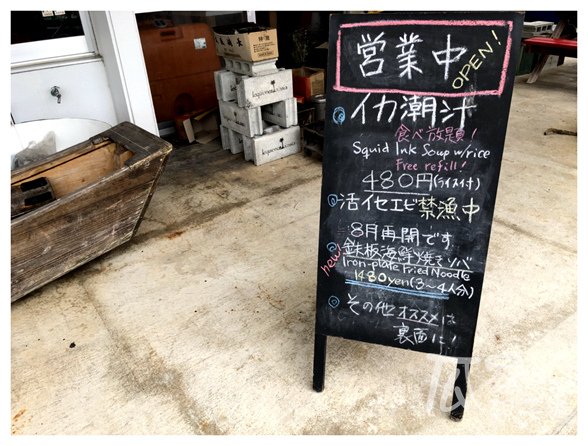 営業中
OPEN!
イカ潮汁
食べ放題!
Squid Ink Soup w/rice
Free refill!
480円(ライス付)
活イセエビ禁漁中
8月再開です
new!
鉄板海鮮焼きソバ
Iron-plate Fried Noodle
1480yen(3〜4人分)
その他オススメは
裏面に!